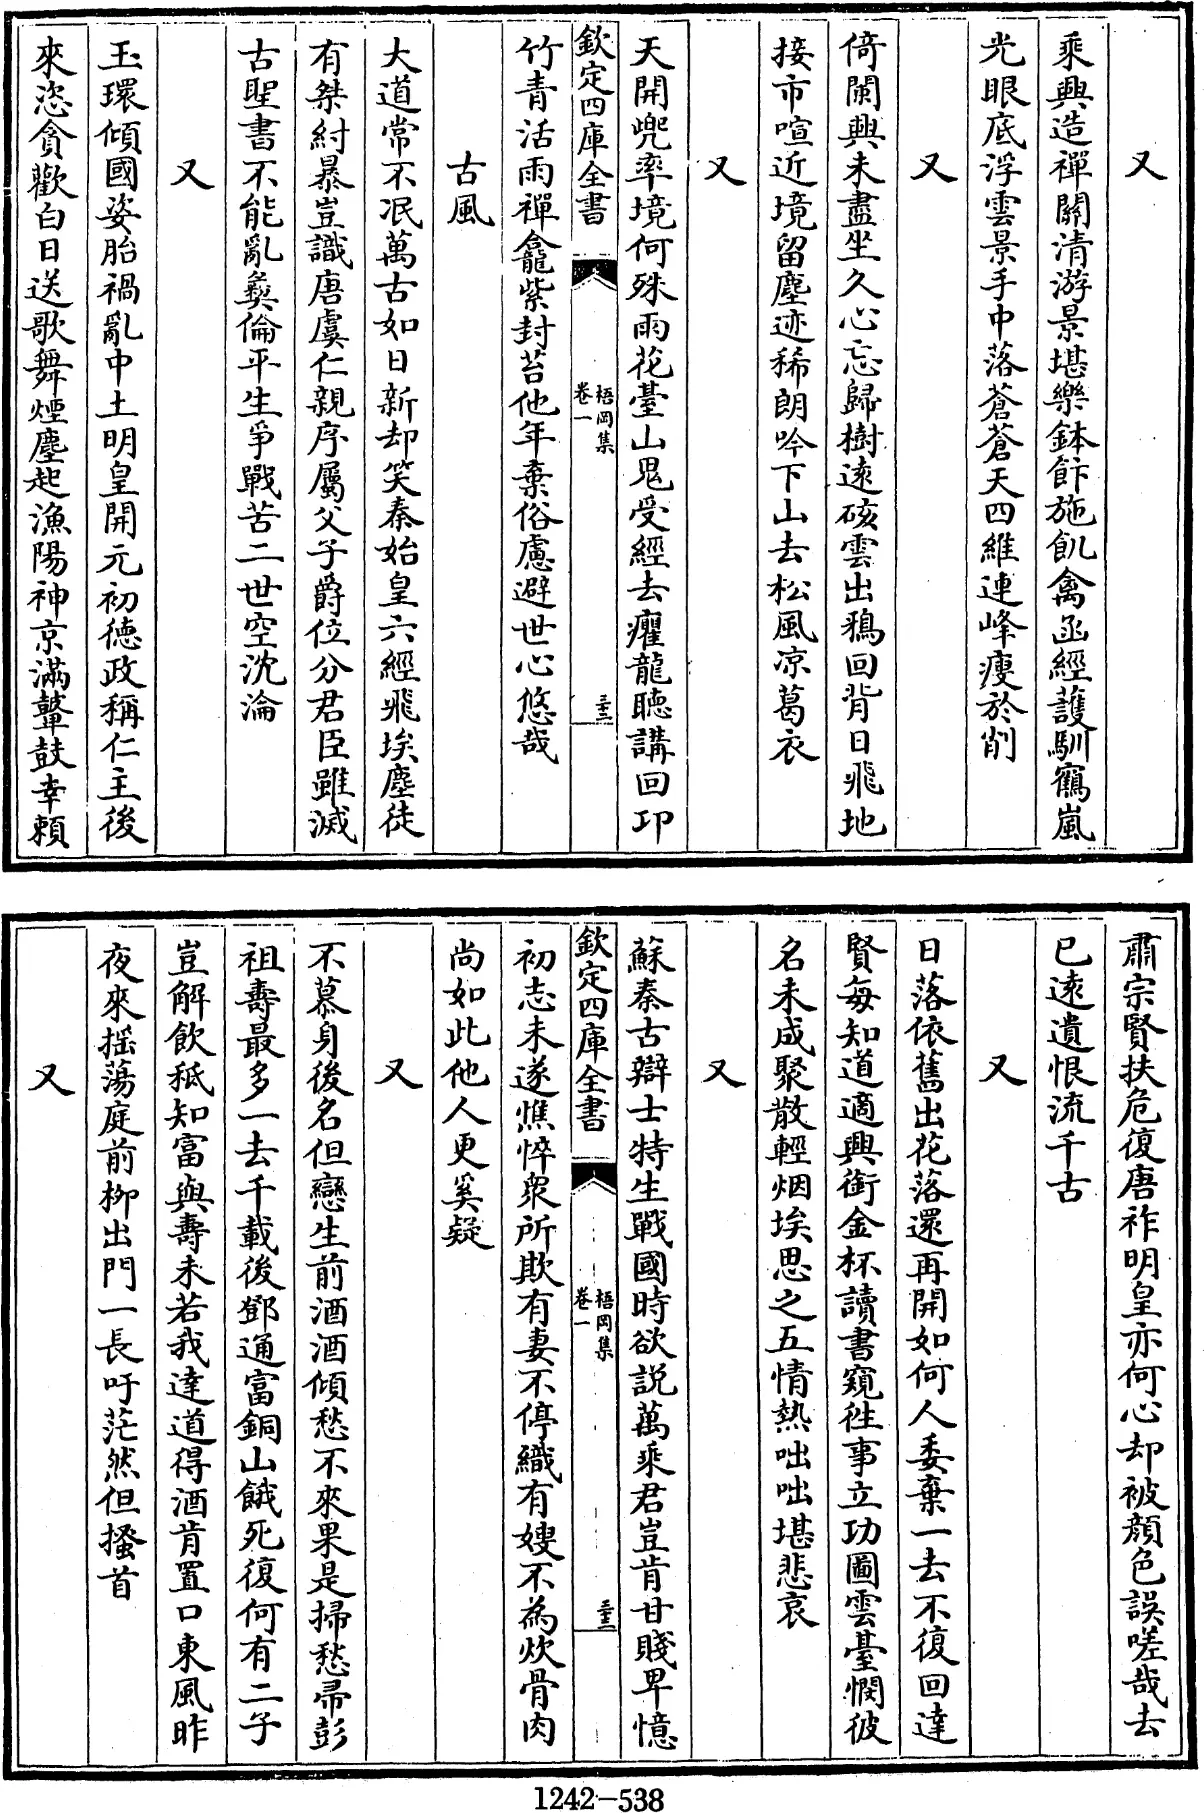 又
乘興造禪關清游景堪樂鉢飰施飢禽函經護馴鶴嵐
光眼底浮雲景手中落蒼蒼天四維連峰瘦於削
又
倚闌興未盡坐久心忘歸樹遠礙雲出鴉回背日飛地
接市喧近境留塵迹稀朗吟下山去松風凉葛衣
又
天開兜率境何殊雨花臺山鬼受經去癯龍聽講回卬
欽定四庫全書
梧岡集
卷一
三十二
竹青活雨禪龕紫封苔他年棄俗慮避世心悠哉
古風
大道常不泯萬古如日新却笑秦始皇六經飛埃塵徒
有桀紂暴豈識唐虞仁親序屬父子爵位分君臣雖滅
古聖書不能亂彞倫平生爭戰苦二世空沈淪
又
玉環傾國姿胎禍亂中土明皇開元初德政稱仁主後
來恣貪歡白日送歌舞煙塵起漁陽神京滿鼙鼓幸賴
肅宗賢扶危復唐祚明皇亦何心却被顔色誤嗟哉去
已遠遺恨流千古
又
日落依舊出花落還再開如何人委棄一去不復回達
賢每知道適興銜金杯讀書窺徃事立功圖雲臺憫彼
名未成聚散輕烟埃思之五情熱咄咄堪悲哀
又
蘇秦古辯士特生戰國時欲説萬乘君豈肯甘賤卑憶
欽定四庫全書
梧岡集
卷一
三十二
初志未遂憔悴衆所欺有妻不停織有嫂不為炊骨肉
尚如此他人更奚疑
又
不慕身後名但戀生前酒酒傾愁不來果是掃愁帚彭
祖壽最多一去千載後鄧通富銅山餓死復何有二子
豈解飲秪知富與壽未若我達道得酒肯置口東風昨
夜來摇蕩庭前柳出門一長吁茫然但搔首
又
1242-538